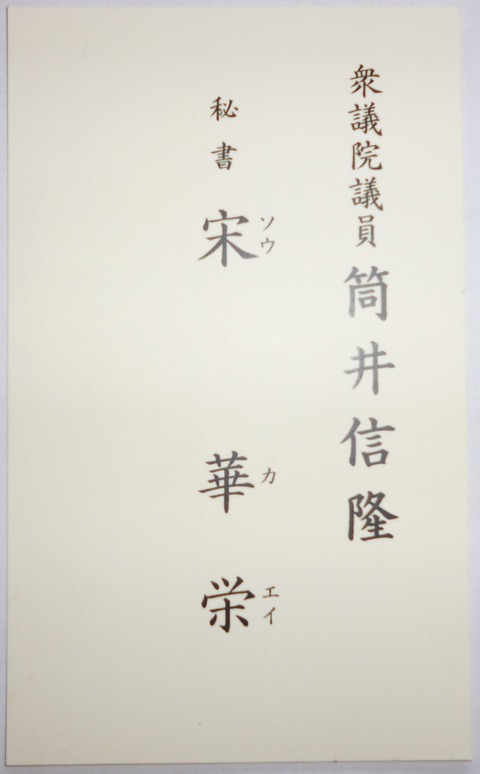 衆議院議員 筒井信隆
秘書 宋 華栄
ソウ カ エイ